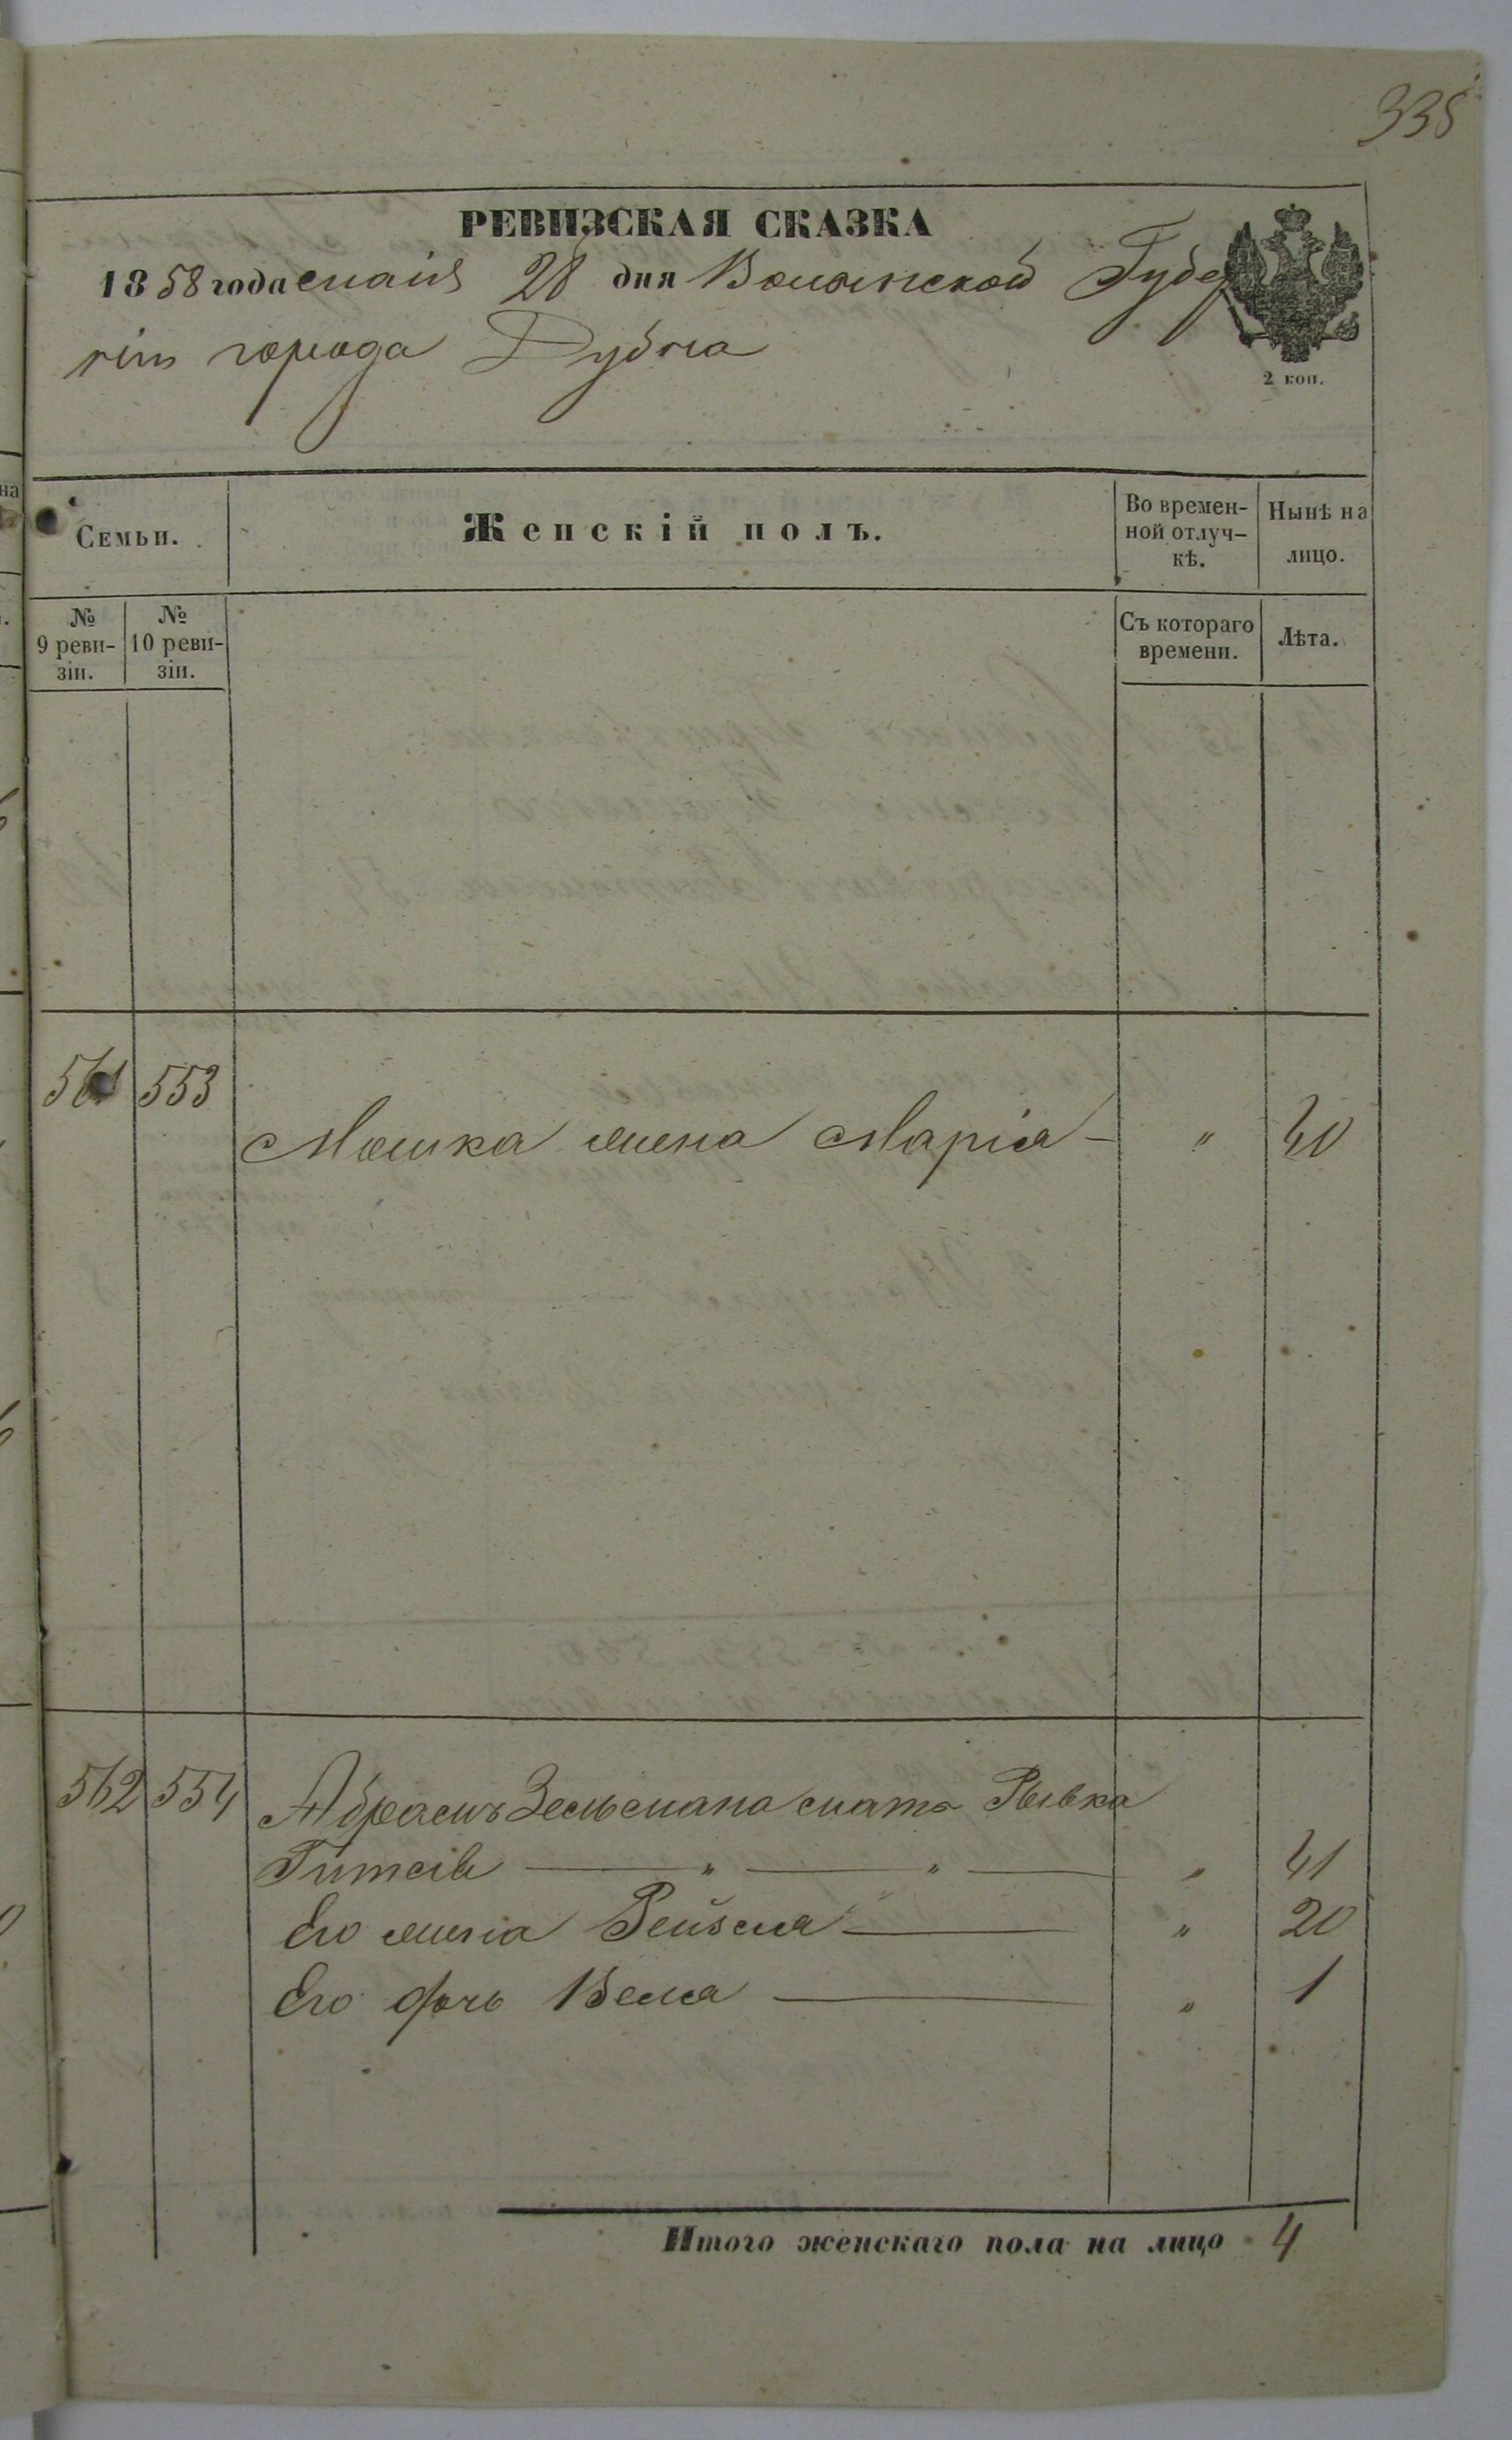 335
РЕВИЗСКАЯ СКАЗКА
1858 года маія 28 дня Волынской Губер
ніи города Дубна
2 коп.
Семьи.
Женскій полъ.
Во времен-
ной отлуч-
кѣ.
Нынѣ на
лицо.
№
9 реви-
зіи.
№
10 реви-
зіи.
Съ котораго
времени.
Лѣта.
561 553
Мошка жена Марія — " 40
562 554 Абрамъ Зельмана мать Рывка
— " — " — " 41
Его жена Рейзля — " 20
Его дочь Бела — " 1
Итого женскаго пола на лицо 4